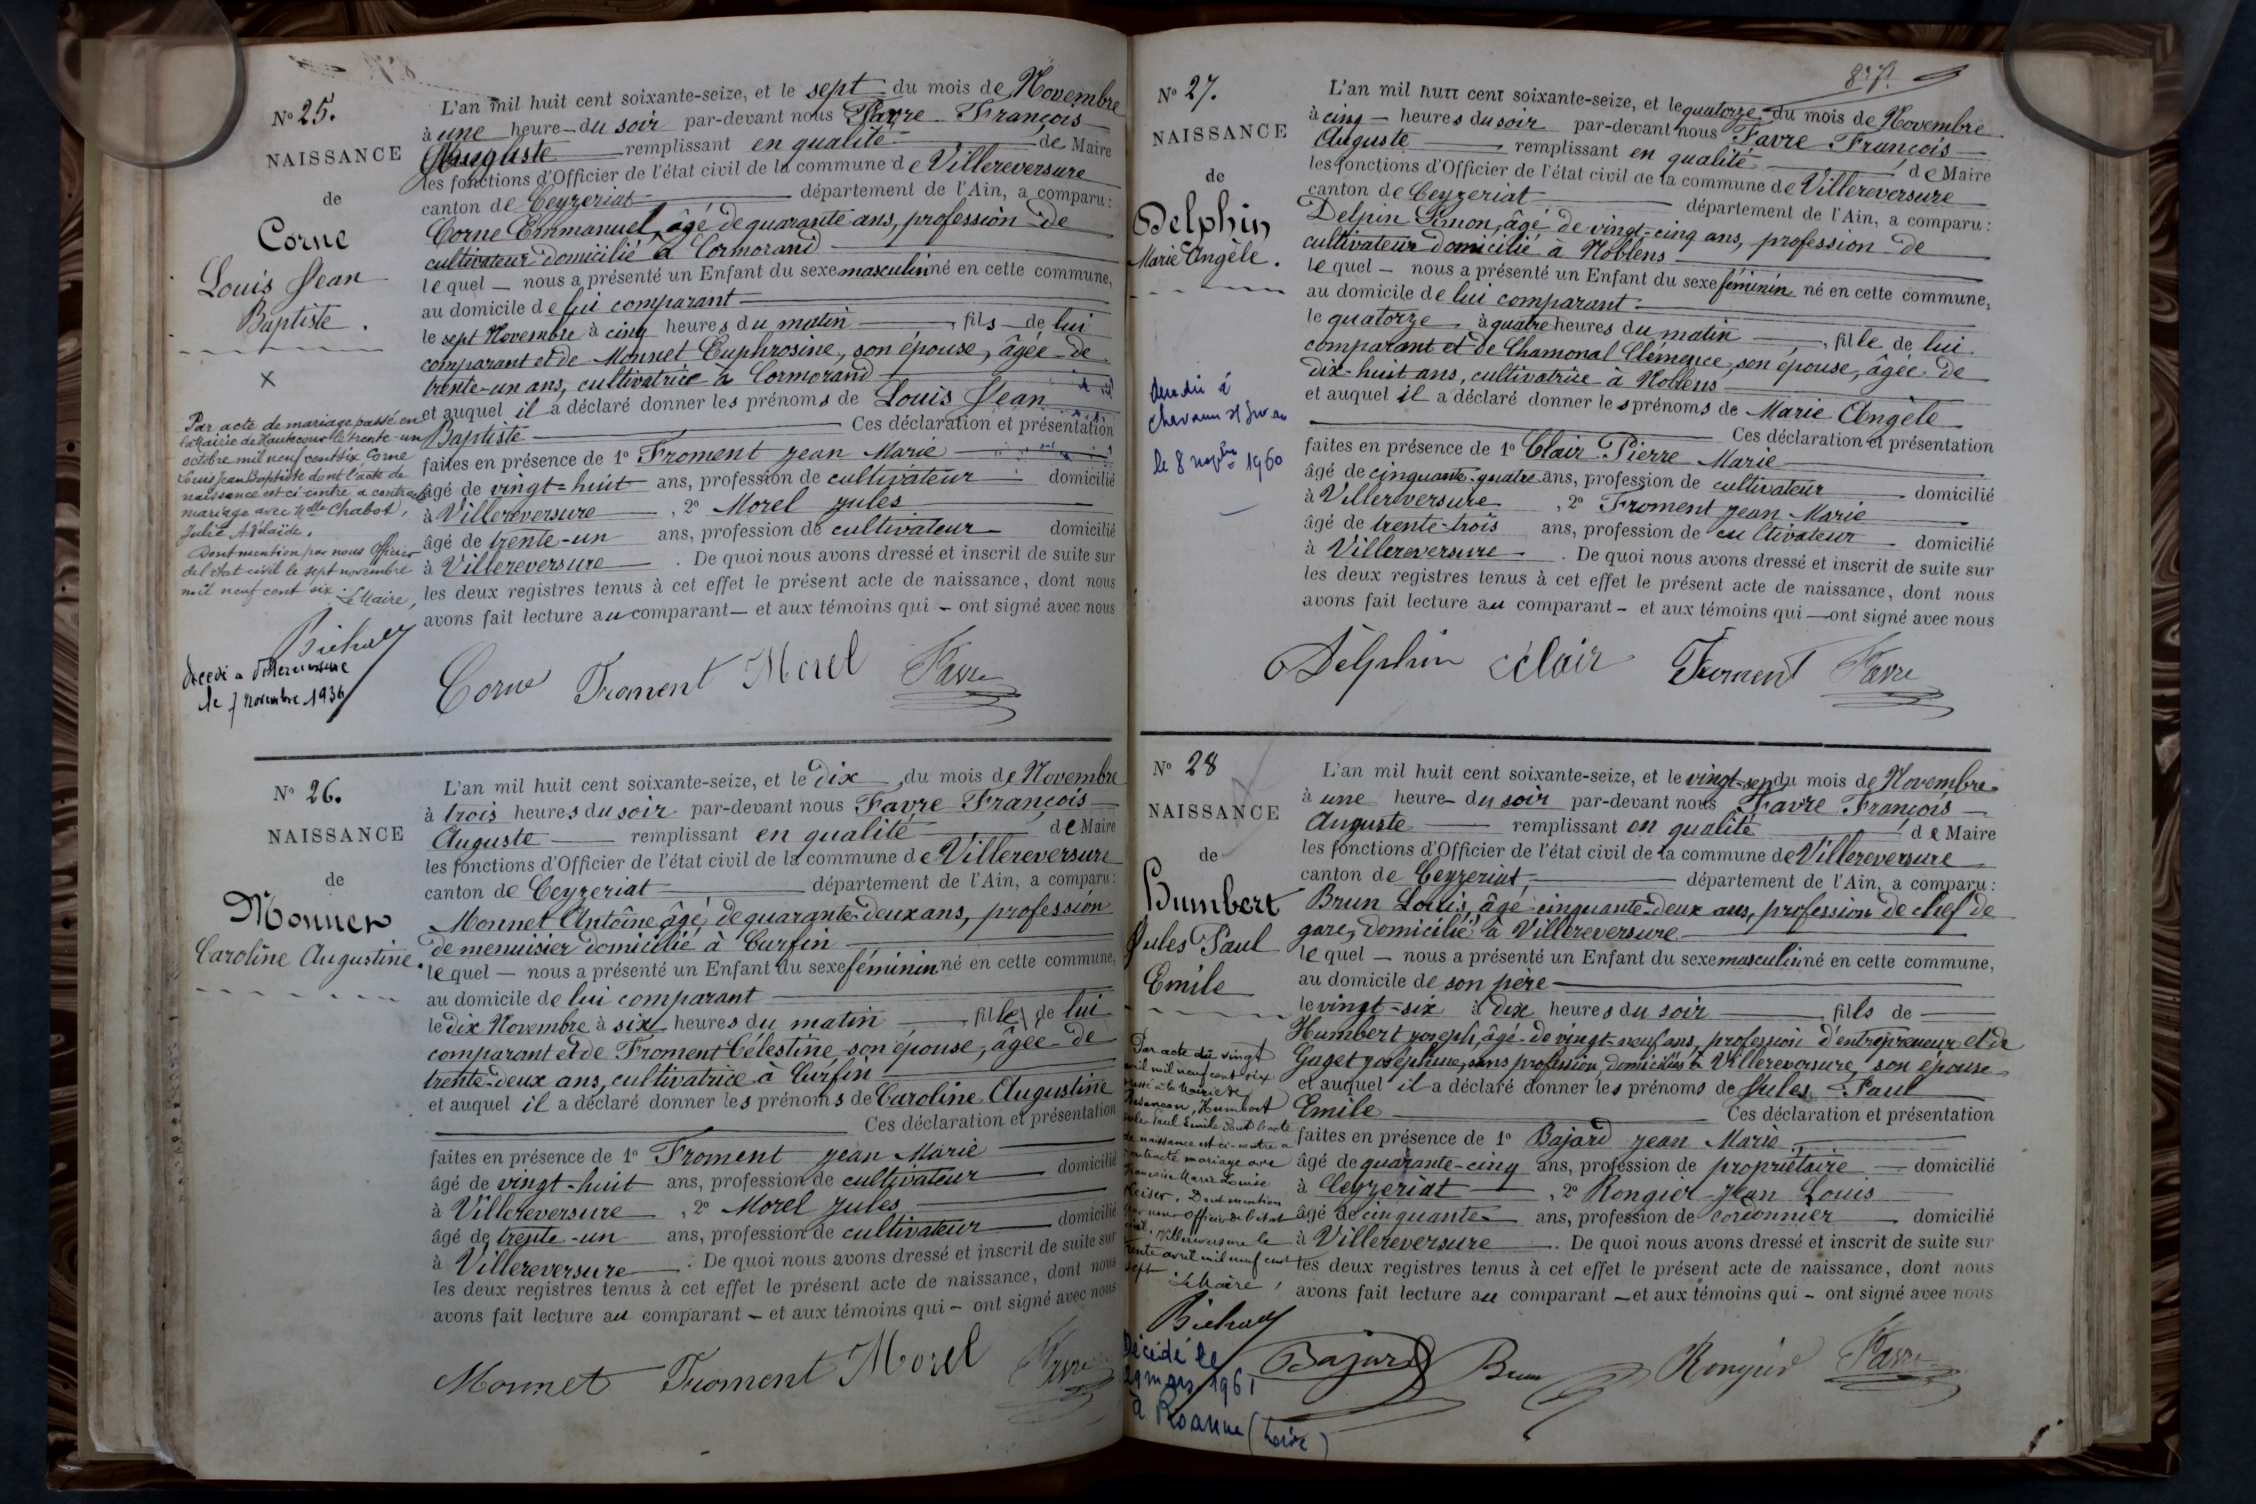 N° 25.
NAISSANCE
de
Corne
Louis Jean
Baptiste.
Par acte de mariage passé en
la Mairie de Hautecour le trente-un
octobre mil neuf cent six Corne
Louis Jean Baptiste dont l'acte de
naissance est ci-contre a contracté
mariage avec Mlle Chabot,
Julie Adélaïde.
Dont mention par nous Officier
de l'état civil le sept novembre
mil neuf cent six. Le Maire,
décédé à Villereversure
le 7 novembre 1936
L'an mil huit cent soixante-seize, et le sept du mois de Novembre
à une heure du soir par-devant nous Favre François
Auguste remplissant en qualité de Maire
les fonctions d'Officier de l'état civil de la commune de Villereversure
canton de Ceyzeriat département de l'Ain, a comparu:
Corne Emmanuel, âgé de quarante ans, profession de
cultivateur domicilié à Cormorand
lequel nous a présenté un Enfant du sexe masculin né en cette commune,
au domicile de lui comparant
le sept Novembre à cinq heures du matin, fils de lui
comparant et de Monnet Euphrosine, son épouse, âgée de
trente-un ans, cultivatrice à Cormorand
et auquel il a déclaré donner les prénoms de Louis Jean
Baptiste Ces déclaration et présentation
faites en présence de 1° Froment Jean Marie
âgé de vingt-huit ans, profession de cultivateur domicilié
à Villereversure, 2° Morel Jules
âgé de trente-un ans, profession de cultivateur domicilié
à Villereversure. De quoi nous avons dressé et inscrit de suite sur
les deux registres tenus à cet effet le présent acte de naissance, dont nous
avons fait lecture au comparant et aux témoins qui ont signé avec nous
Corne Froment Morel Favre
N° 26.
NAISSANCE
de
Monnet
Caroline Augustine.
L'an mil huit cent soixante-seize, et le dix du mois de Novembre
à trois heures du soir par-devant nous Favre François
Auguste remplissant en qualité de Maire
les fonctions d'Officier de l'état civil de la commune de Villereversure
canton de Ceyzeriat département de l'Ain, a comparu:
Monnet Antoine âgé de quarante-deux ans, profession
de menuisier domicilié à Curfin
lequel nous a présenté un Enfant du sexe féminin né en cette commune,
au domicile de lui comparant
le dix Novembre à six heures du matin, fille de lui
comparant et de Froment Célestine son épouse, âgée de
trente-deux ans, cultivatrice à Curfin
et auquel il a déclaré donner les prénoms de Caroline Augustine
Ces déclaration et présentation
faites en présence de 1° Froment Jean Marie
âgé de vingt-huit ans, profession de cultivateur domicilié
à Villereversure, 2° Morel Jules
âgé de trente-un ans, profession de cultivateur domicilié
à Villereversure. De quoi nous avons dressé et inscrit de suite sur
les deux registres tenus à cet effet le présent acte de naissance, dont nous
avons fait lecture au comparant et aux témoins qui ont signé avec nous
Monnet Froment Morel Favre
N° 27.
NAISSANCE
de
Delphin
Marie Angèle.
le 8 novbre 1960
L'an mil huit cent soixante-seize, et le quatorze du mois de Novembre
à cinq heures du soir par-devant nous Favre François
Auguste remplissant en qualité de Maire
les fonctions d'Officier de l'état civil de la commune de Villereversure
canton de Ceyzeriat département de l'Ain, a comparu:
Delpin Simon, âgé de vingt-cinq ans, profession de
cultivateur domicilié à Noblens
lequel nous a présenté un Enfant du sexe féminin né en cette commune,
au domicile de lui comparant
le quatorze à quatre heures du matin, fille de lui
comparant et de Chamonal Clémence son épouse, âgée de
dix-huit ans, cultivatrice à Noblens
et auquel il a déclaré donner les prénoms de Marie Angèle
Ces déclaration et présentation
faites en présence de 1° Clair Pierre Marie
âgé de cinquante-quatre ans, profession de cultivateur domicilié
à Villereversure, 2° Froment Jean Marie
âgé de trente-trois ans, profession de cultivateur domicilié
à Villereversure. De quoi nous avons dressé et inscrit de suite sur
les deux registres tenus à cet effet le présent acte de naissance, dont nous
avons fait lecture au comparant et aux témoins qui ont signé avec nous
Delphin Clair Froment Favre
N° 28
NAISSANCE
de
Humbert
Jules Paul
Emile
Par acte du vingt
avril mil neuf cent six
passé à la Mairie de
Besançon, Humbert
Jules Paul Emile dont l'acte
de naissance est ci-contre a
contracté mariage avec
Marie Louise
Keiser. Dont mention
par nous Officier de l'état
civil. Villereversure le
trente avril mil neuf cent
sept
Le Maire,
Décédé le
29 mars 1961
à Roanne (Loire)
L'an mil huit cent soixante-seize, et le vingt-sept du mois de Novembre
à une heure du soir par-devant nous Favre François
Auguste remplissant en qualité de Maire
les fonctions d'Officier de l'état civil de la commune de Villereversure
canton de Ceyzeriat, département de l'Ain, a comparu:
Brun Louis, âgé cinquante-deux ans, profession de chef de
gare, domicilié à Villereversure
lequel nous a présenté un Enfant du sexe masculin né en cette commune,
au domicile de son père
le vingt-six à dix heures du soir fils de
Humbert Joseph, âgé de vingt-neuf ans, profession d'entrepreneur et de
Gaget Joséphine, sans profession, domiciliés à Villereversure, son épouse
et auquel il a déclaré donner les prénoms de Jules Paul
Emile Ces déclaration et présentation
faites en présence de 1° Bajard Jean Marie
âgé de quarante-cinq ans, profession de propriétaire domicilié
à Ceyzeriat, 2° Rongier Jean Louis
âgé de cinquante ans, profession de cordonnier domicilié
à Villereversure. De quoi nous avons dressé et inscrit de suite sur
les deux registres tenus à cet effet le présent acte de naissance, dont nous
avons fait lecture au comparant et aux témoins qui ont signé avec nous
Bajard Brun Rongier Favre